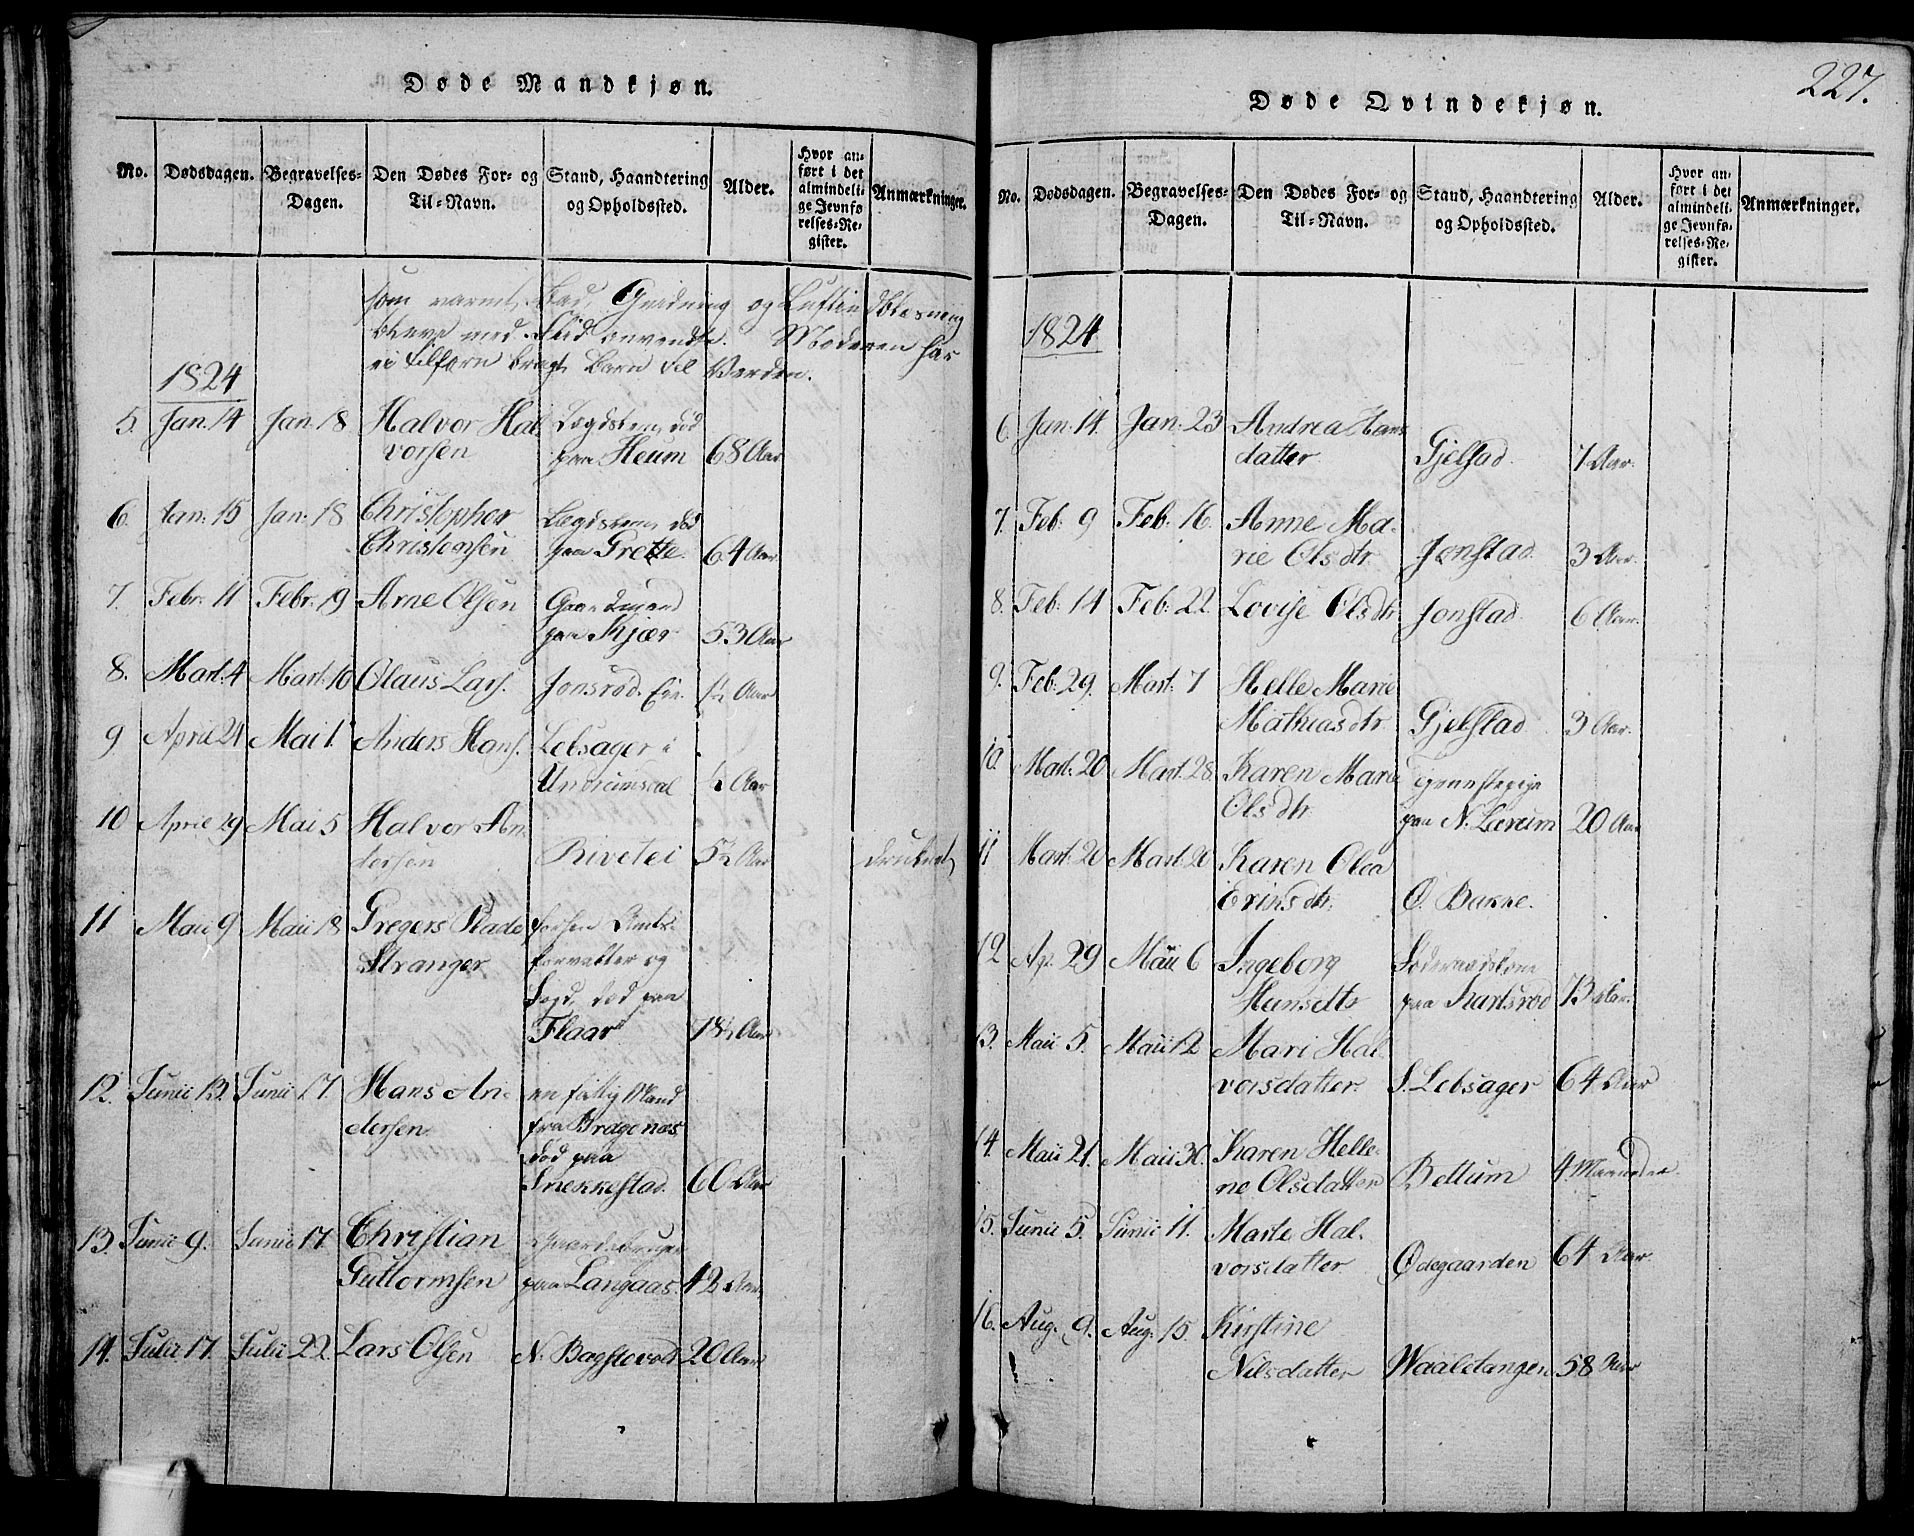 Døde Mandkjøn.
No. Dødsdagen. Begravelses-Dagen. Den Dødes For- og Til-Navn. Stand, Haandtering og Opholdssted. Alder. Hvor anført i det almindelige Jevnførelses-Register. Anmærkninger.
som varmt Bad, Gnidning og Luftindblæsning
bleve med Flid anvendte. Moderen har
ei tilforn bragt Barn til Verden.
1824
5. Jan: 14 Jan: 18 Halvor Hal-
vorsen Lægdslem, død
paa Heum 68 Aar
6. Jan: 15 Jan: 18 Christopher
Christensen Lægdslem, død
paa Grette 64 Aar
7. Febr: 11 Febr: 19 Arne Olsen Gaardmand
paa Kjær 53 Aar
8. Mart: 4 Mart: 10 Olaus Lars. Jonsrød Eie. 1½ Aar
9 April 24 Mai 1. Anders Hans. Lebsager i
Undrumsdal ½ Aar
10 April 29 Mai 5 Halvor An-
dersen Rivetei 5½ Aar druknet
11 Maii 9 Maii 18 Gregers Stade
Stranger forhen Amts-
forvalter og
Fogd, død paa
Flaar 78½ Aar
12. Junii 13. Junii 17 Hans An-
dersen en fattig Mand
fra Bragenæs
død paa
Snekkestad. 60 Aar
13. Junii 9. Junii 17. Christian
Guttormsen Gaardebruger
paa Langaas 42 Aar
14. Julii 17. Julii 22. Lars Olsen N. Bagstevold 20 Aar
227.
Døde Qvindekjøn.
No. Dødsdagen. Begravelses-Dagen. Den Dødes For- og Til-Navn. Stand, Haandtering og Opholdssted. Alder. Hvor anført i det almindelige Jevnførelses-Register. Anmærkninger.
1824
6. Jan: 14. Jan: 23 Andrea Hans
datter Gjelstad 7 Aar.
7. Feb: 9 Feb: 16. Anne Ma-
rie Olsdtr. Jonstad 3 Aar.
8. Feb: 14 Feb: 22. Lovise Olsdtr Jonstad 6 Aar.
9. Feb: 29. Mart: 7 Helle Marie
Mathiasdtr. Gjelstad 3 Aar.
10. Mart: 20 Mart: 28 Karen Marie
Olsdtr. Tjenestepige
paa N. Lærum 20 Aar
11 Mart: 20 Mart: 20 Karen Olea
Erinsdtr. Ø. Bakke.
12 Ap: 29 Maii 6 Ingeborg
Hansdtr Føderaadskone
paa Karlsrød 73 Aar.
13. Maii 5. Maii 12 Mari Hal-
vorsdatter S. Lebsager 64 Aar
14. Maii 21. Maii 30. Karen Helle-
ne Olsdatter Bettum 4 Maaneder
15. Junii 5. Junii 11. Marte Hal-
vorsdatter Ødegaarden 64 Aar
16. Aug. 9. Aug: 15 Kirstine
Nilsdatter Waaletangen 58 Aar